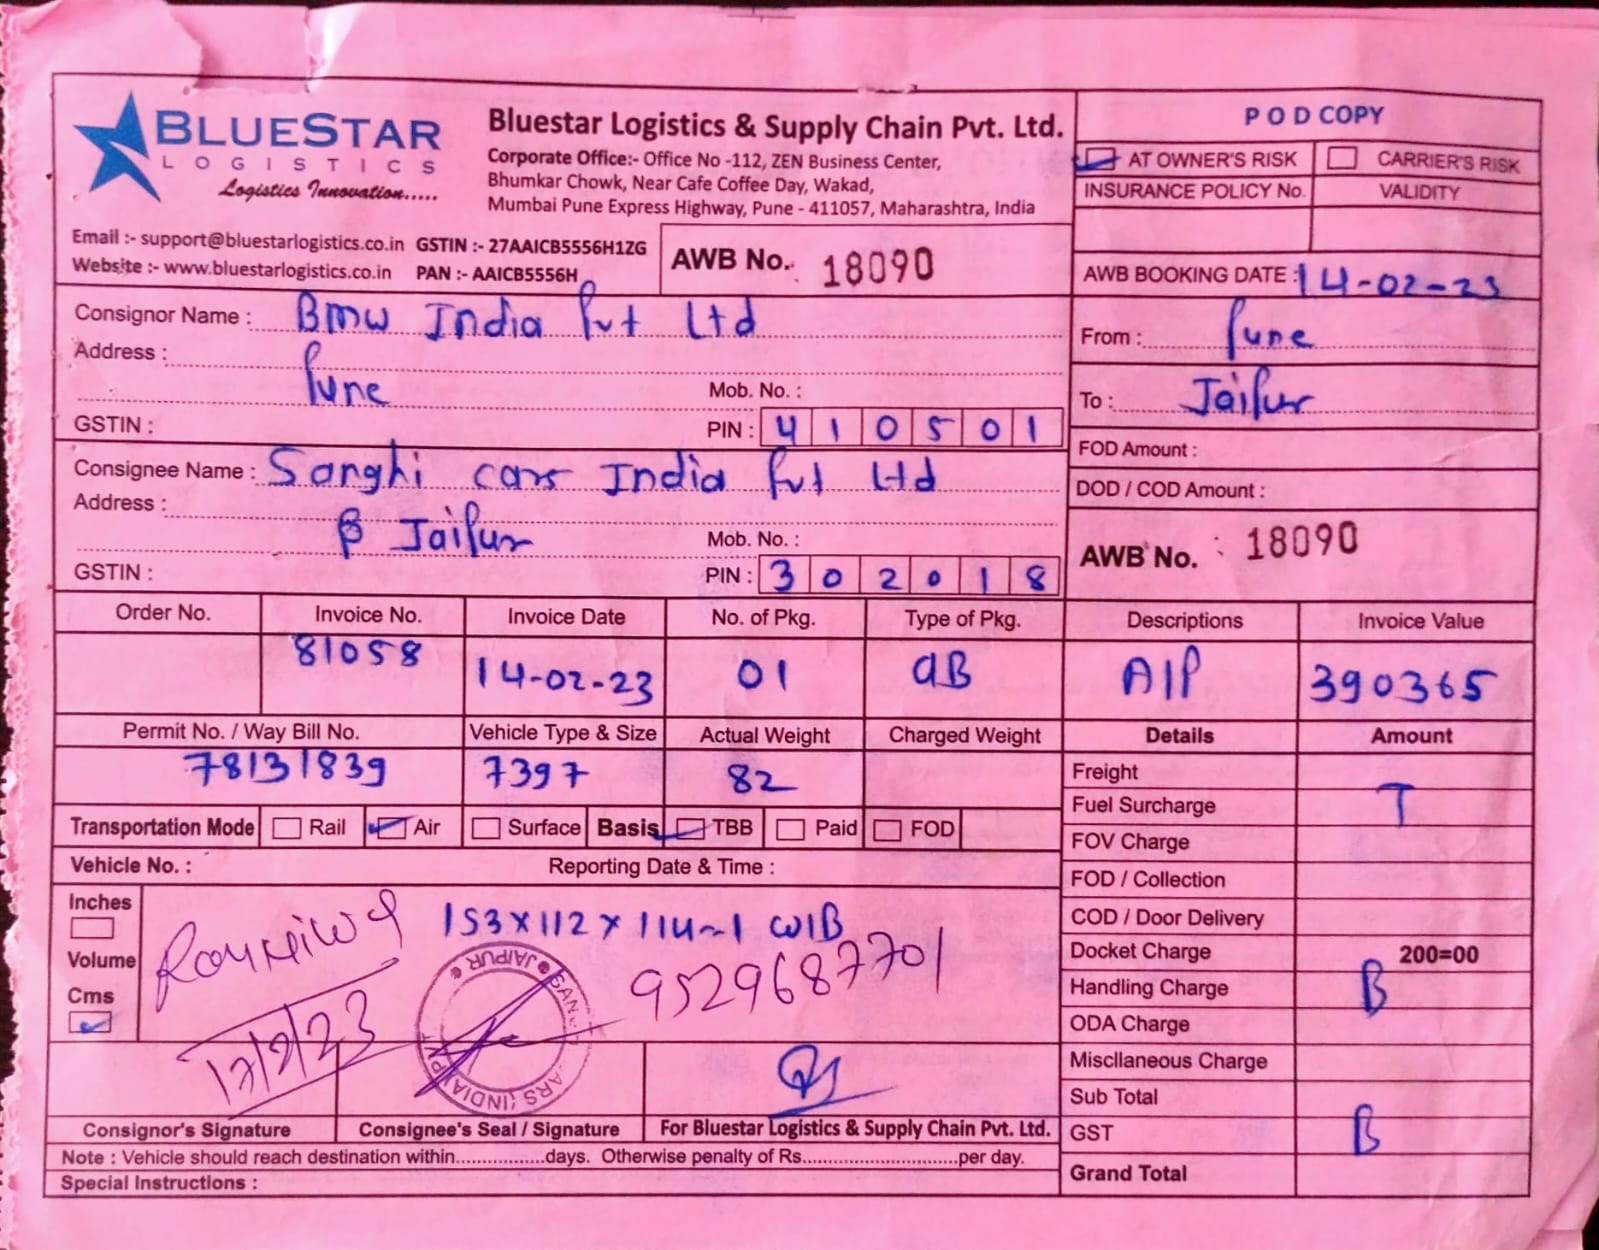 BLUESTAR
LOGISTICS
Logistics Innovation.....
Bluestar Logistics & Supply Chain Pvt. Ltd.
Corporate Office:- Office No -112, ZEN Business Center,
Bhumkar Chowk, Near Cafe Coffee Day, Wakad,
Mumbai Pune Express Highway, Pune - 411057, Maharashtra, India
Email :- support@bluestarlogistics.co.in GSTIN :- 27AAICB5556H1ZG
Website :- www.bluestarlogistics.co.in PAN :- AAICB5556H
AWB No. 18090
POD COPY
AT OWNER'S RISK CARRIER'S RISK
INSURANCE POLICY No. VALIDITY
AWB BOOKING DATE : 14-02-23
Consignor Name : BMW India Pvt Ltd
Address :
Pune Mob. No. :
GSTIN : PIN : 410501
From : Pune
To : Jaipur
Consignee Name : Sanghi cars India Pvt Ltd
Address :
Jaipur Mob. No. :
GSTIN : PIN : 302018
FOD Amount :
DOD / COD Amount :
AWB No. : 18090
Order No. Invoice No. Invoice Date No. of Pkg. Type of Pkg. Descriptions Invoice Value
81058 14-02-23 01 AIP 390365
Permit No. / Way Bill No. Vehicle Type & Size Actual Weight Charged Weight Details Amount
78131839 7397 82
Transportation Mode Rail Air Surface Basis TBB Paid FOD
Vehicle No. : Reporting Date & Time :
Inches
Volume
Cms
153x112x114-1 WIB
9529687701
17/2/23
JAIPUR
Freight
Fuel Surcharge T
FOV Charge
FOD / Collection
COD / Door Delivery
Docket Charge 200=00
Handling Charge B
ODA Charge
Miscllaneous Charge
Sub Total
GST B
Grand Total
Consignor's Signature Consignee's Seal / Signature For Bluestar Logistics & Supply Chain Pvt. Ltd.
Note : Vehicle should reach destination within...............days. Otherwise penalty of Rs..........................per day.
Special Instructions :